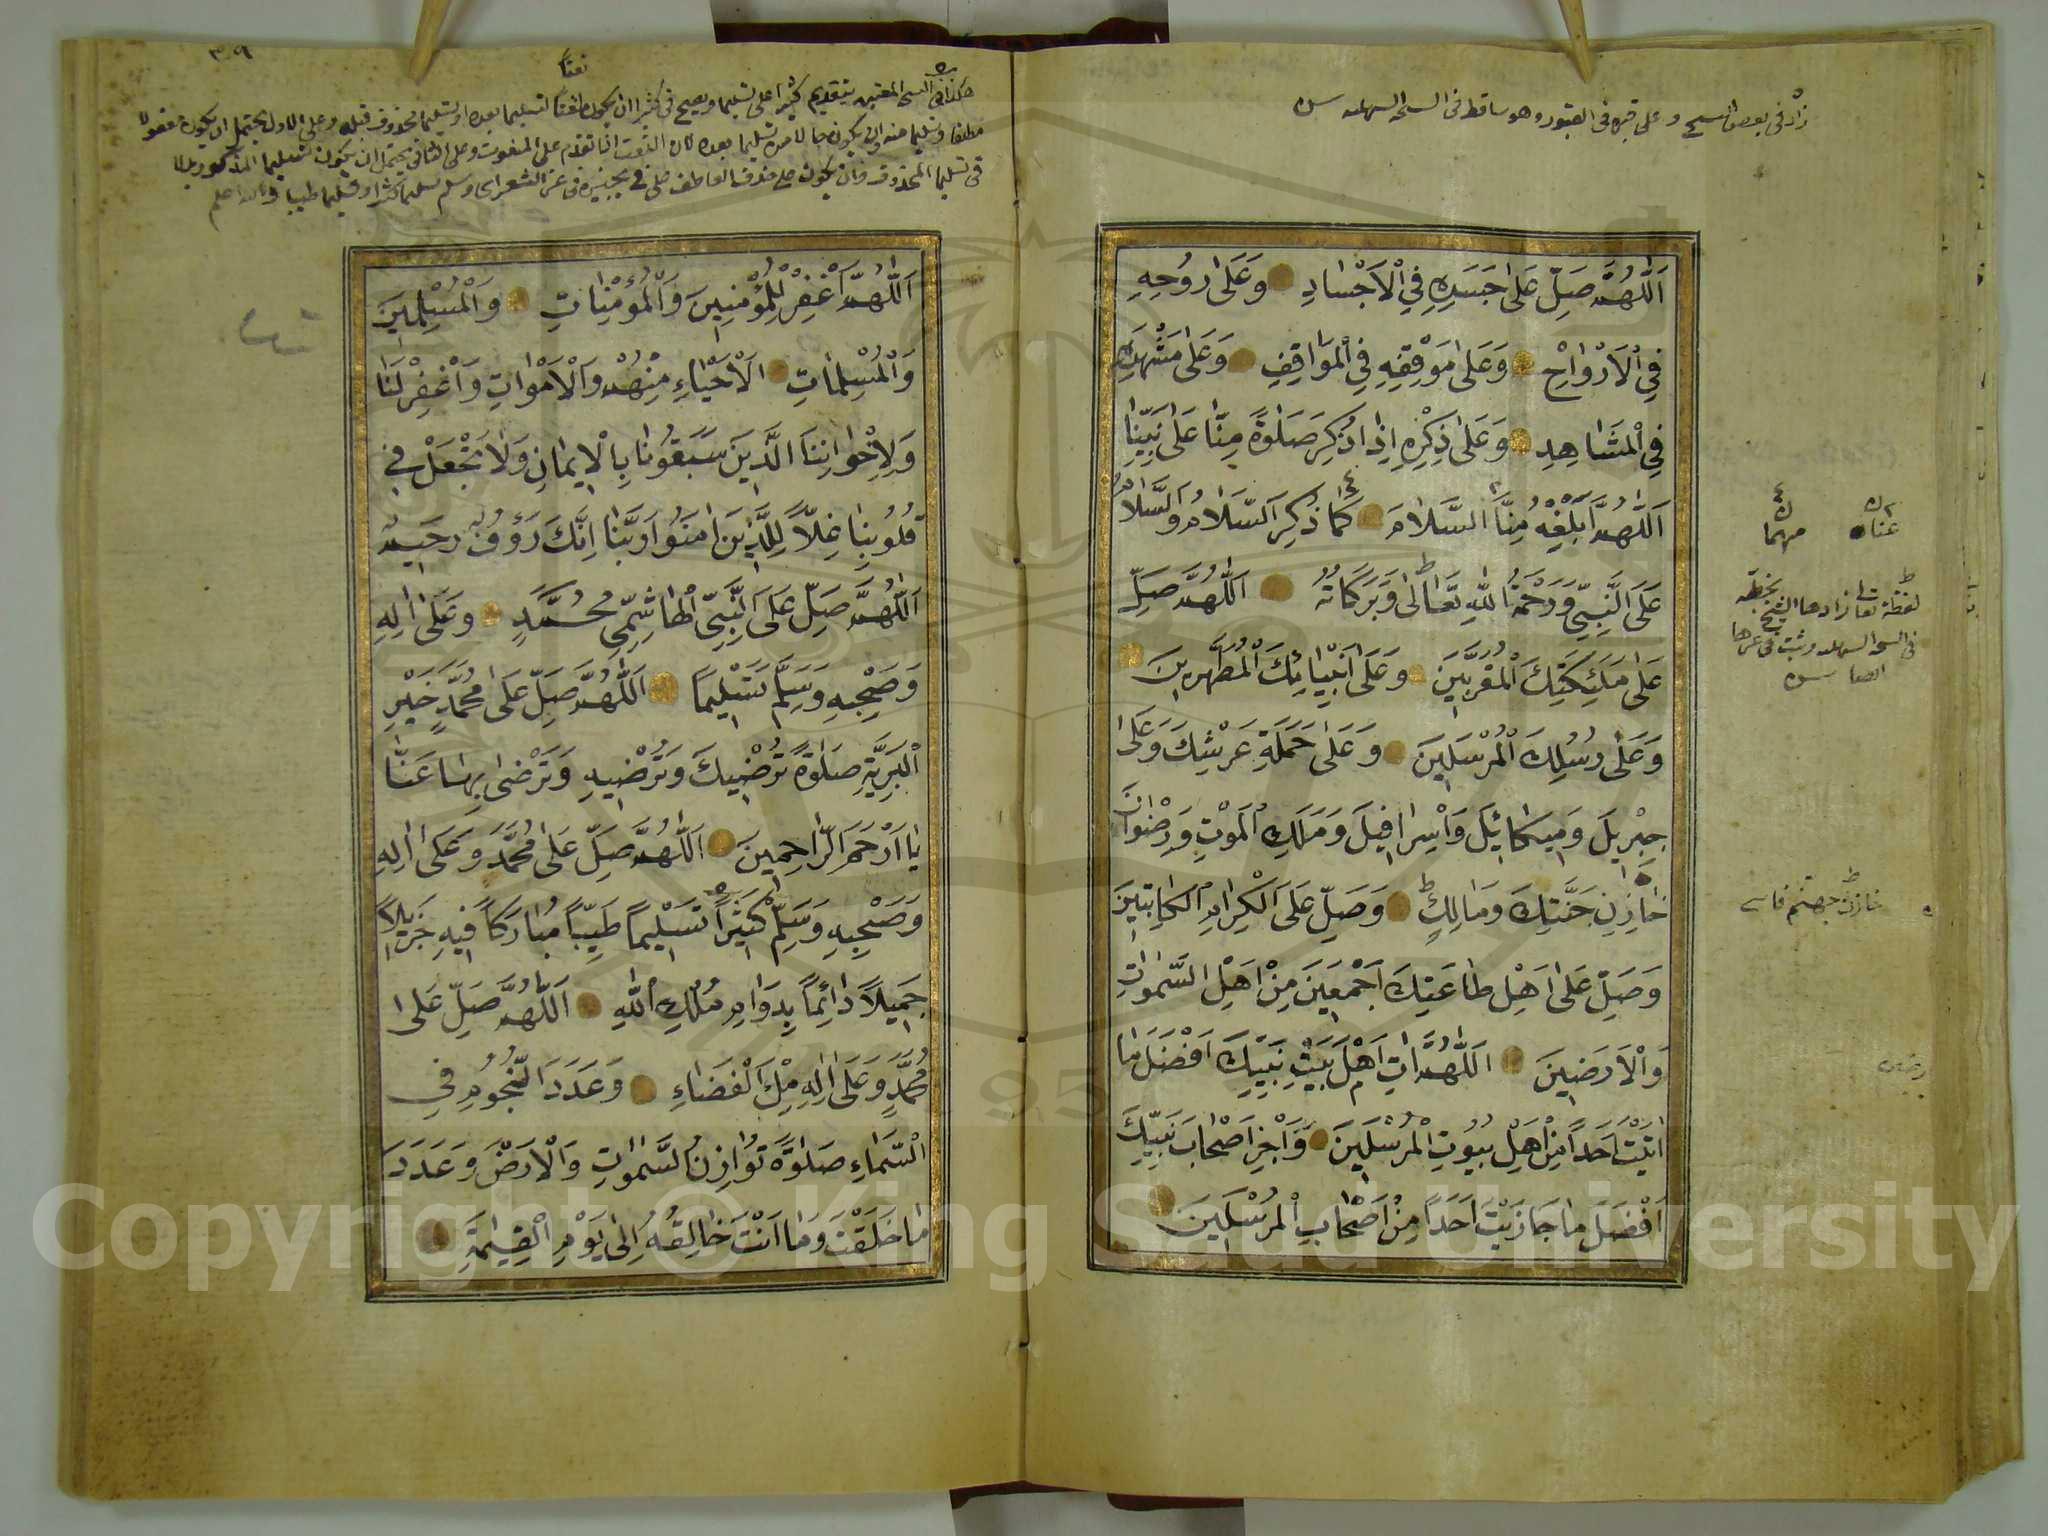 زاد في بعض النسخ وعلى قبره في القبور وهو ساقط في النسخة السهلية
اَللّٰهُمَّ صَلِّ عَلٰى جَسَدِهِ فِي الْاَجْسَادِ وَعَلٰى رُوحِهِ
فِي الْاَرْوَاحِ وَعَلٰى مَوْقِفِهِ فِي الْمَوَاقِفِ وَعَلٰى مَشْهَدِهِ
فِي الْمَشَاهِدِ وَعَلٰى ذِكْرِهِ اِذَا ذُكِرَ صَلٰوةً مِنَّا عَلٰى نَبِيِّنَا
اَللّٰهُمَّ اَبْلِغْهُ مِنَّا السَّلَامَ كَمَا ذُكِرَ السَّلَامُ وَالسَّلَامُ
عَلَى النَّبِيِّ وَرَحْمَةُ اللّٰهِ تَعَالٰى وَبَرَكَاتُهُ اَللّٰهُمَّ صَلِّ
عَلٰى مَلٰئِكَتِكَ الْمُقَرَّبِينَ وَعَلٰى اَنْبِيَائِكَ الْمُطَهَّرِينَ
وَعَلٰى رُسُلِكَ الْمُرْسَلِينَ وَعَلٰى حَمَلَةِ عَرْشِكَ وَعَلٰى
جِبْرِيلَ وَمِيكَائِلَ وَاِسْرَافِيلَ وَمَلَكِ الْمَوْتِ وَرِضْوَانَ
خَازِنِ جَنَّتِكَ وَمَالِكٍ وَصَلِّ عَلَى الْكِرَامِ الْكَاتِبِينَ
وَصَلِّ عَلٰى اَهْلِ طَاعَتِكَ اَجْمَعِينَ مِنْ اَهْلِ السَّمٰوَاتِ
وَالْاَرَضِينَ اَللّٰهُمَّ اٰتِ اَهْلَ بَيْتِ نَبِيِّكَ اَفْضَلَ مَا
اٰتَيْتَ اَحَداً مِنْ اَهْلِ بُيُوتِ الْمُرْسَلِينَ وَاَجْزِ اَصْحَابَ نَبِيِّكَ
اَفْضَلَ مَا جَازَيْتَ اَحَداً مِنْ اَصْحَابِ الْمُرْسَلِينَ
عنا
مهما
لفظة تعالى زادها الشيخ بخطه
في النسخة السهلية وثبت في غيرها
ايضا
خازن جهنم فاسي
٣٠٩
اَللّٰهُمَّ اغْفِرْ لِلْمُؤْمِنِينَ وَالْمُؤْمِنَاتِ وَالْمُسْلِمِينَ
وَالْمُسْلِمَاتِ الْاَحْيَاءِ مِنْهُمْ وَالْاَمْوَاتِ وَاغْفِرْ لَنَا
وَلِاِخْوَانِنَا الَّذِينَ سَبَقُونَا بِالْاِيمَانِ وَلَا تَجْعَلْ فِي
قُلُوبِنَا غِلّاً لِلَّذِينَ اٰمَنُوا رَبَّنَا اِنَّكَ رَؤُفٌ رَحِيمٌ
اَللّٰهُمَّ صَلِّ عَلَى النَّبِيِّ الْهَاشِمِيِّ مُحَمَّدٍ وَعَلٰى اٰلِهِ
وَصَحْبِهِ وَسَلِّمْ تَسْلِيماً اَللّٰهُمَّ صَلِّ عَلٰى مُحَمَّدٍ خَيْرِ
الْبَرِيَّةِ صَلٰوةً تُرْضِيكَ وَتُرْضِيهِ وَتَرْضٰى بِهَا عَنَّا
يَا اَرْحَمَ الرَّاحِمِينَ اَللّٰهُمَّ صَلِّ عَلٰى مُحَمَّدٍ وَعَلٰى اٰلِهِ
وَصَحْبِهِ وَسَلِّمْ كَثِيراً تَسْلِيماً طَيِّباً مُبَارَكاً فِيهِ جَزِيلاً
جَمِيلاً دَائِماً بِدَوَامِ مُلْكِ اللّٰهِ اَللّٰهُمَّ صَلِّ عَلٰى
مُحَمَّدٍ وَعَلٰى اٰلِهِ مِلْءَ الْفَضَاءِ وَعَدَدَ النُّجُومِ فِي
السَّمَاءِ صَلٰوةً تُوَازِنُ السَّمٰوَاتِ وَالْاَرْضَ وَعَدَدَ
مَا خَلَقْتَ وَمَا اَنْتَ خَالِقُهُ اِلٰى يَوْمِ الْقِيٰمَةِ
Copyright © King Saud University